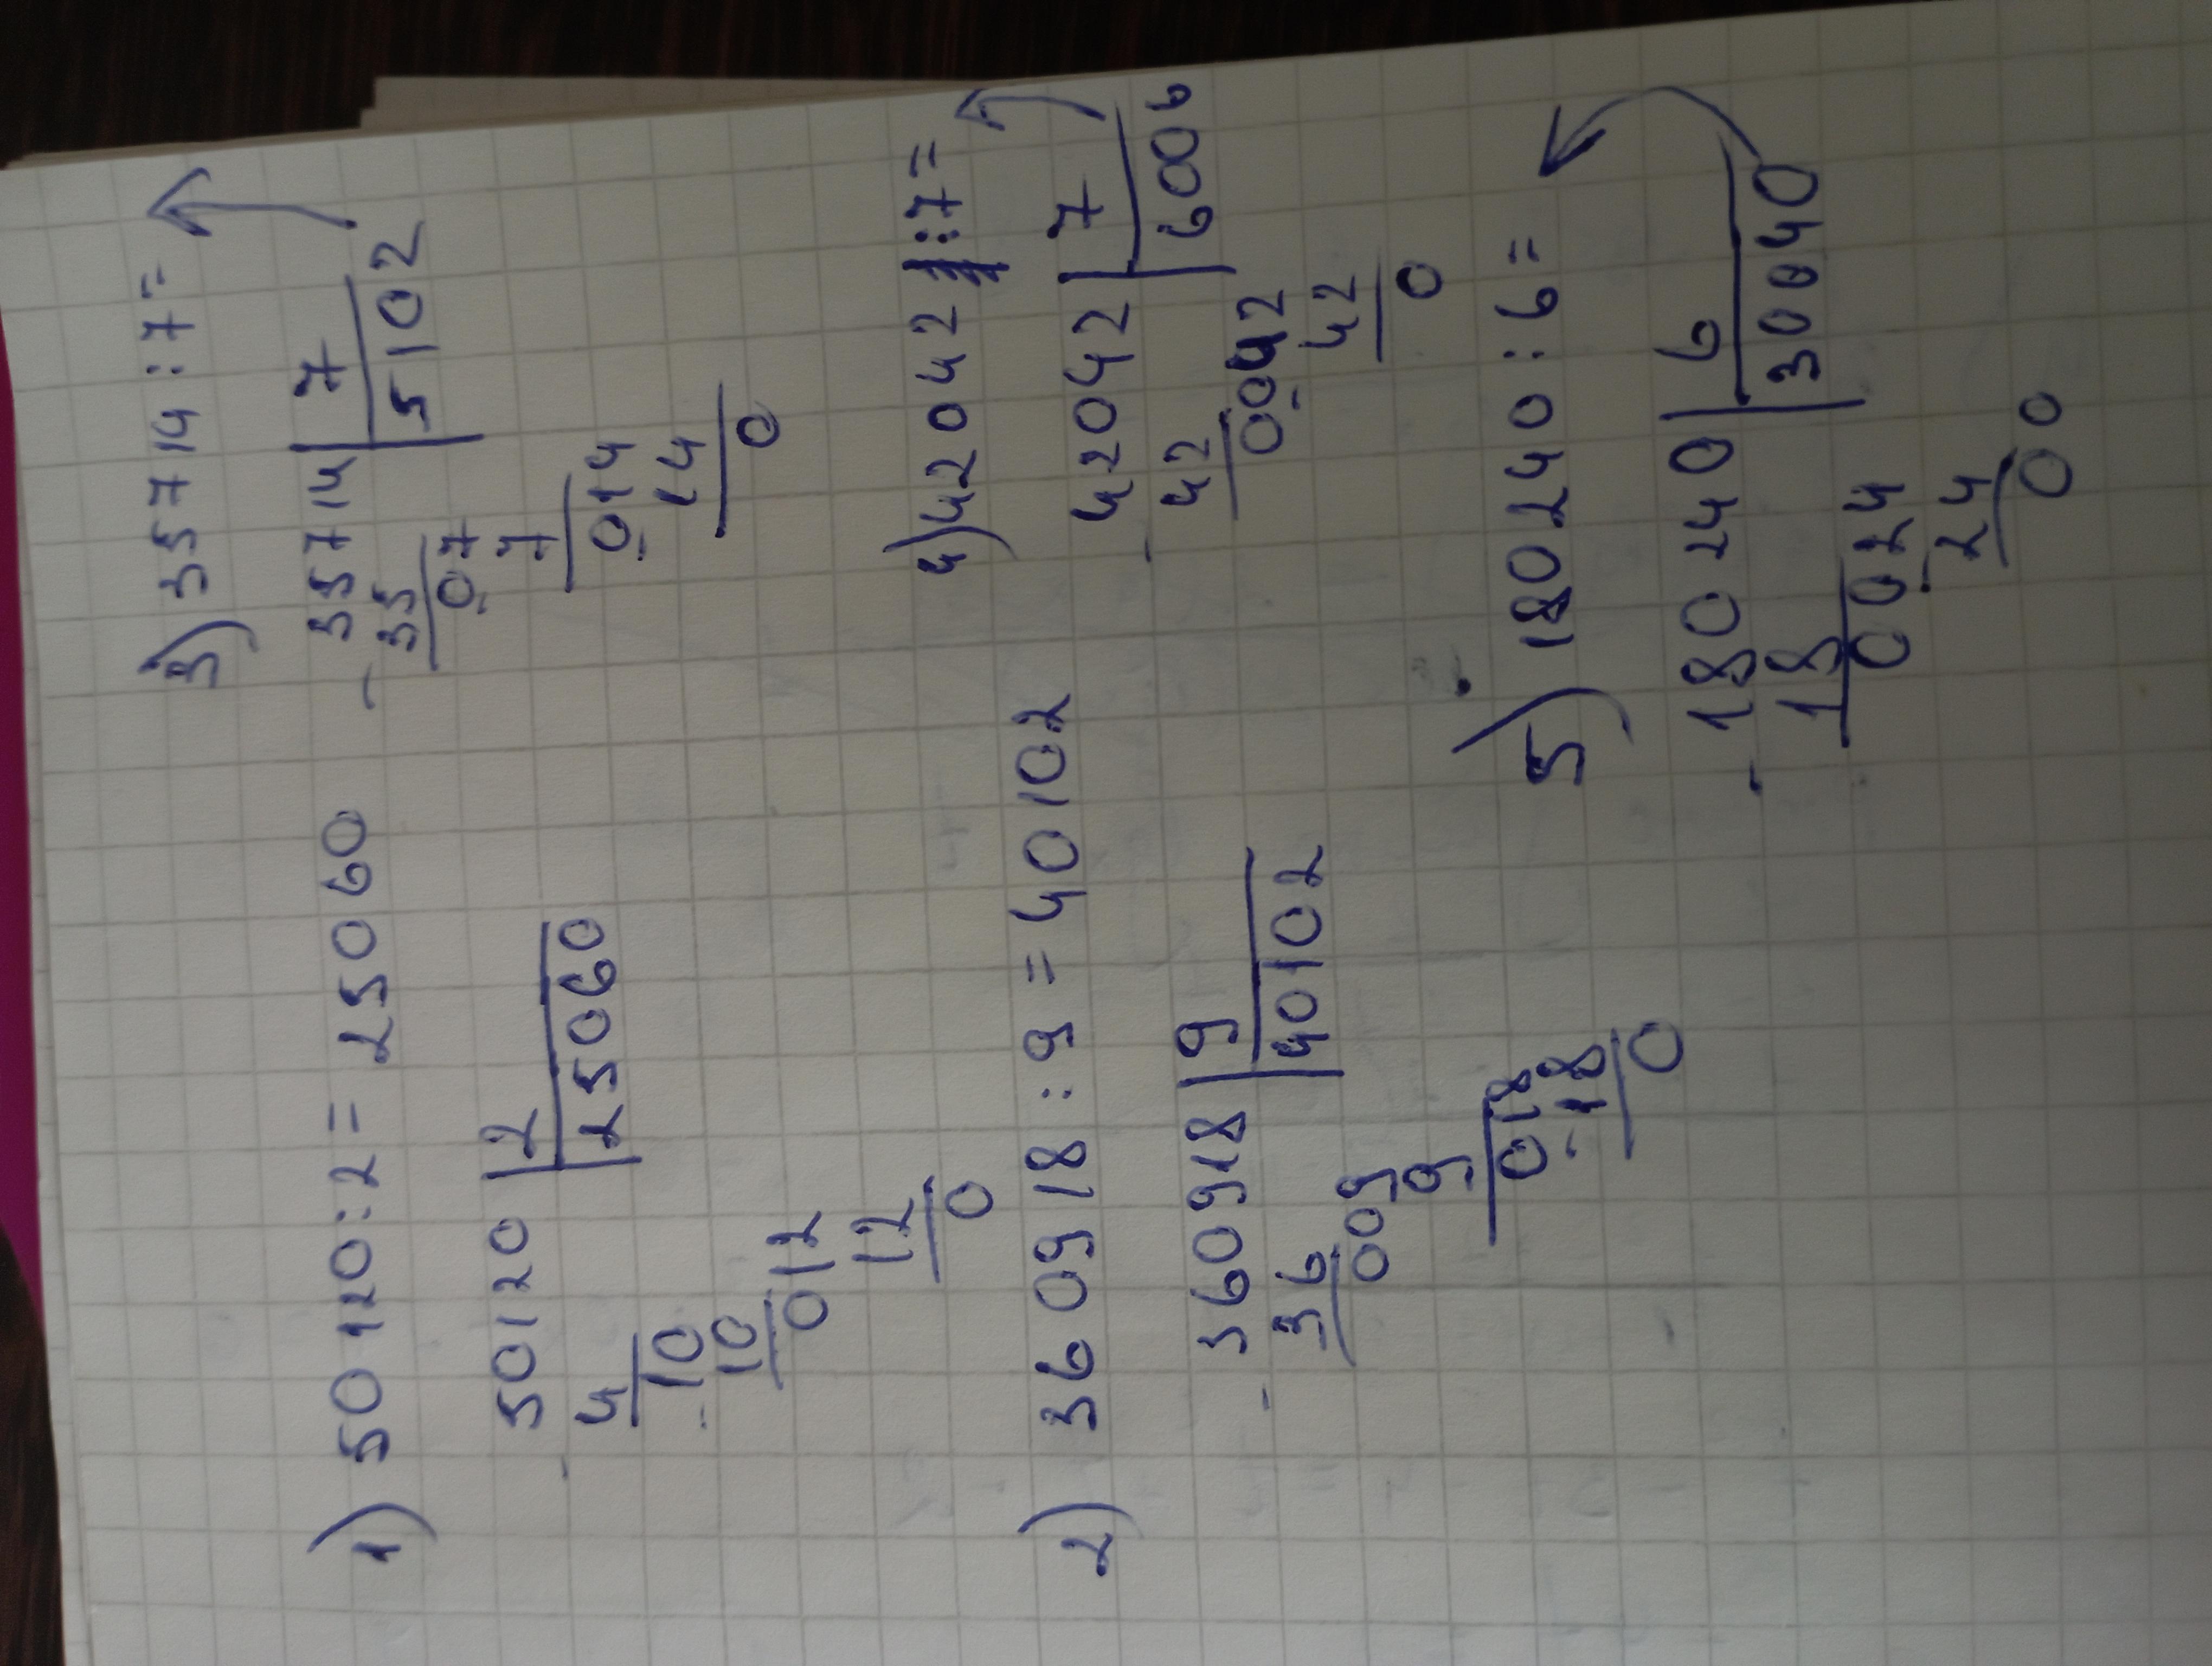 1) 50120:2=25060
50120 2
4 25060
-10
10
012
12
0
2) 360918:9=40102
- 360918 9
36 40102
009
9
018
-18
0
3) 35714:7=
- 35714 7
35 5102
07
7
014
14
0
4) 42042:7=
- 42042 7
42 6006
0042
42
0
5) 180240:6=
- 180240 6
18 30040
0024
24
00